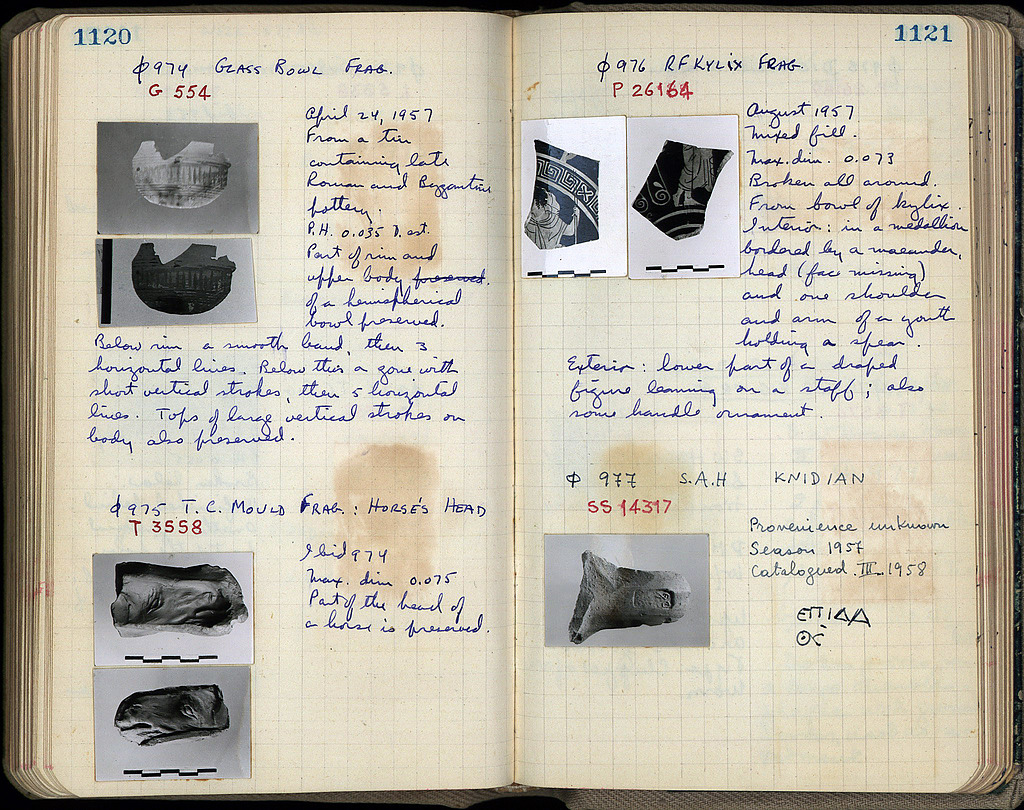 1120
φ974 GLASS BOWL FRAG.
G 554
April 24, 1957
From a tin
containing late
Roman and Byzantine
pottery.
P.H. 0.035 D. est.
Part of rim and
upper body preserved.
of a hemispherical
bowl preserved.
Below rim a smooth band, then 3
horizontal lines. Below this a zone with
short vertical strokes, then 5 horizontal
lines. Tops of large vertical strokes on
body also preserved.
φ975 T.C. MOULD FRAG.: HORSE'S HEAD
T 3558
Ibid 974
Max. dim 0.075
Part of the head of
a horse is preserved.
1121
φ976 RF KYLIX FRAG.
P 26164
August 1957
Mixed fill.
Max. dim. 0.073
Broken all around.
From bowl of kylix.
Interior: in a medallion
bordered by a maeander,
head (face missing)
and one shoulder
and arm of a youth
holding a spear.
Exterior: lower part of a draped
figure leaning on a staff; also
some handle ornament.
φ 977 S.A.H KNIDIAN
SS 14317
Provenience unknown
Season 1957
Catalogued III 1958
ΕΠΙΔΑ